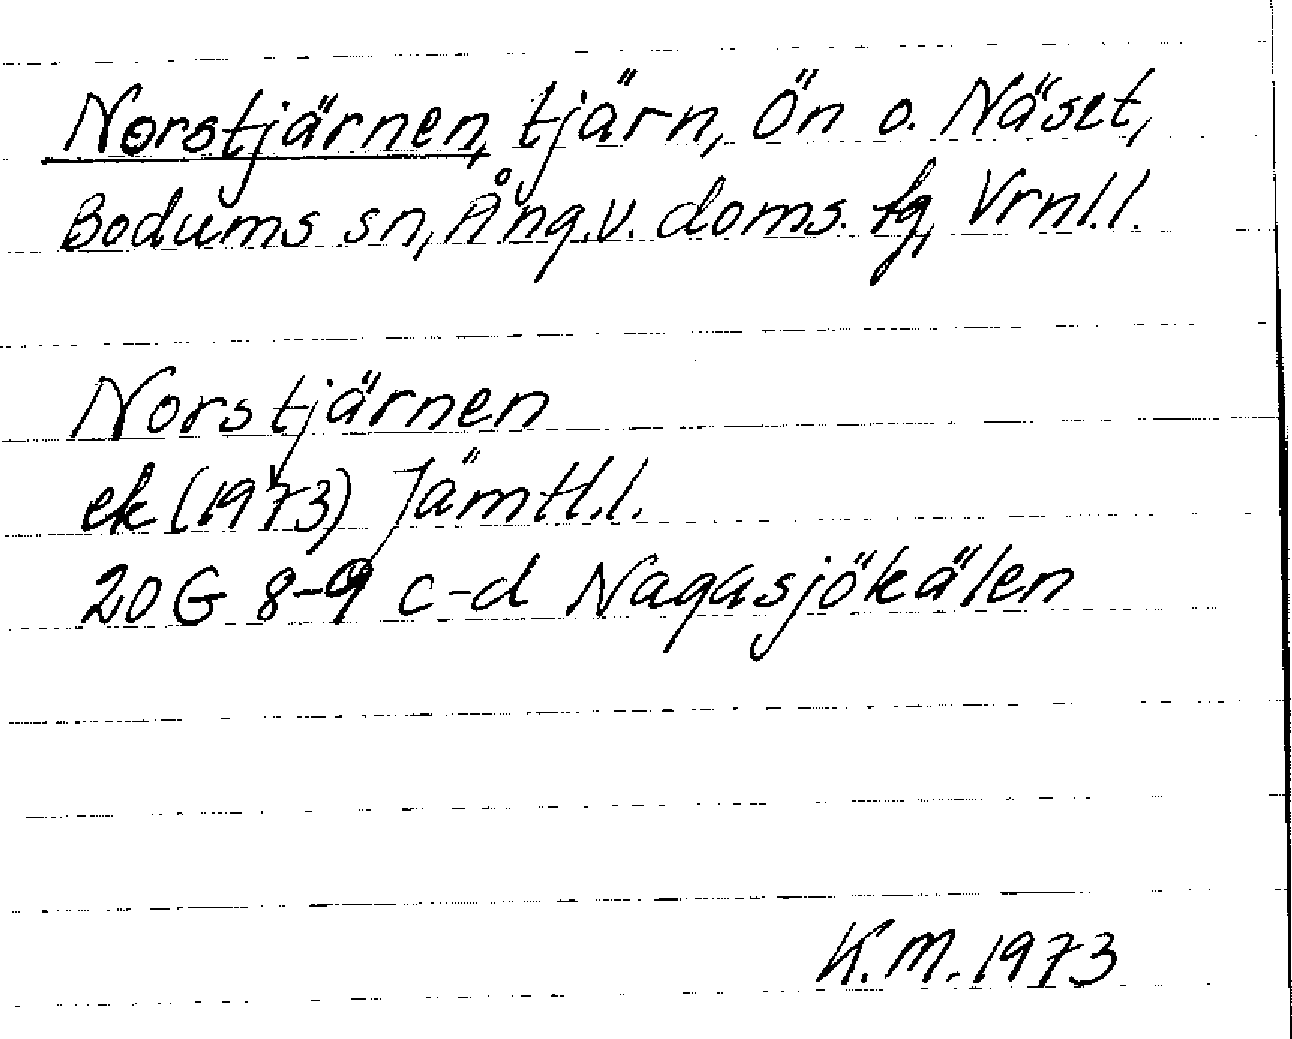 Norstjärnen, tjärn, Ön o. Näset,
Bodums sn, Ång.v. doms. fg, Vrnl.l.
Norstjärnen
ek (1973) Jämtl.l.
20 G 8-9 c-d Nagasjökälen
K.M. 1973